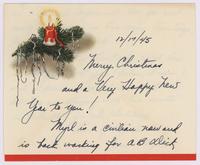 12/19/45
Merry Christmas
and a Very Happy New
Year to you!
Myrl is a civilian now and
is back working for